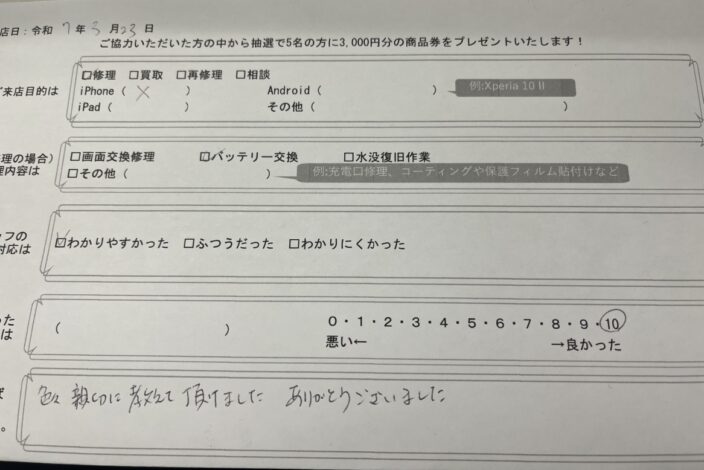 店日：令和 7 年 3 月 23 日
ご協力いただいた方の中から抽選で5名の方に3,000円分の商品券をプレゼントいたします！
来店目的は
☑修理 □買取 □再修理 □相談
iPhone（ X ） Android（ ） 例:Xperia 10 II
iPad（ ） その他（ ）
理の場合）
理内容は
□画面交換修理 ☑バッテリー交換 □水没復旧作業
□その他（ ） 例:充電口修理、コーティングや保護フィルム貼付けなど
ッフの
対応は
☑わかりやすかった □ふつうだった □わかりにくかった
った
は
（ ）
0・1・2・3・4・5・6・7・8・9・10
悪い← →良かった
色々 親切に教えて頂けました ありがとうございました
。